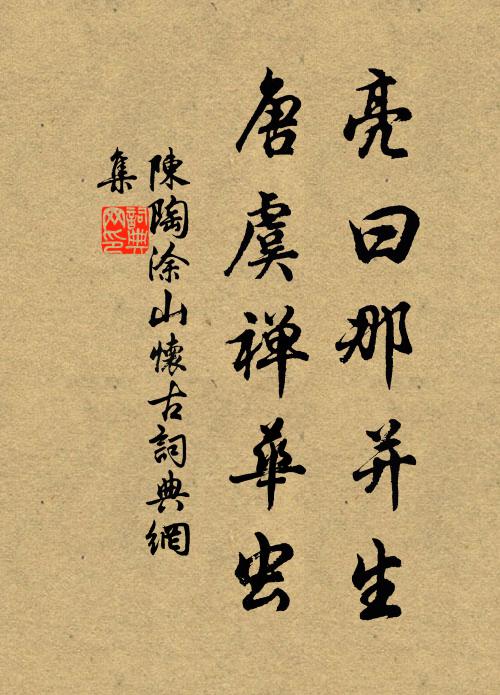 亮曰那并生
唐虞禅華虫
陳陶涂山懷古詞典網
集
詞典网印